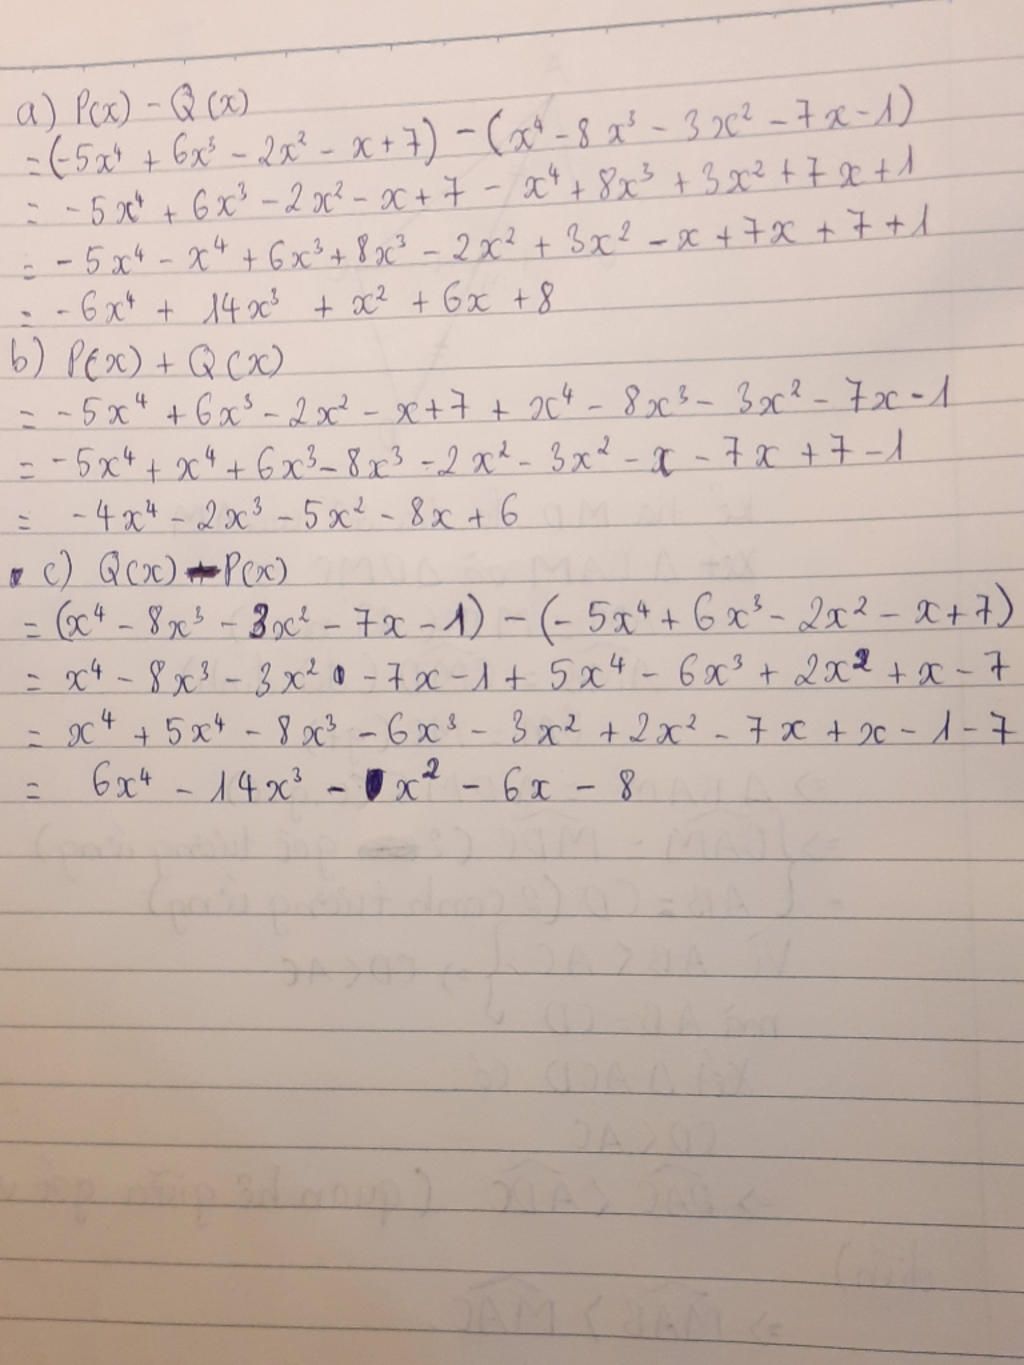 a) P(x) - Q(x)
= (-5x⁴ + 6x³ - 2x² - x + 7) - (x⁴ - 8x³ - 3x² - 7x - 1)
= -5x⁴ + 6x³ - 2x² - x + 7 - x⁴ + 8x³ + 3x² + 7x + 1
= -5x⁴ - x⁴ + 6x³ + 8x³ - 2x² + 3x² - x + 7x + 7 + 1
= -6x⁴ + 14x³ + x² + 6x + 8
b) P(x) + Q(x)
= -5x⁴ + 6x³ - 2x² - x + 7 + x⁴ - 8x³ - 3x² - 7x - 1
= -5x⁴ + x⁴ + 6x³ - 8x³ - 2x² - 3x² - x - 7x + 7 - 1
= -4x⁴ - 2x³ - 5x² - 8x + 6
c) Q(x) - P(x)
= (x⁴ - 8x³ - 3x² - 7x - 1) - (-5x⁴ + 6x³ - 2x² - x + 7)
= x⁴ - 8x³ - 3x² - 7x - 1 + 5x⁴ - 6x³ + 2x² + x - 7
= x⁴ + 5x⁴ - 8x³ - 6x³ - 3x² + 2x² - 7x + x - 1 - 7
= 6x⁴ - 14x³ - x² - 6x - 8